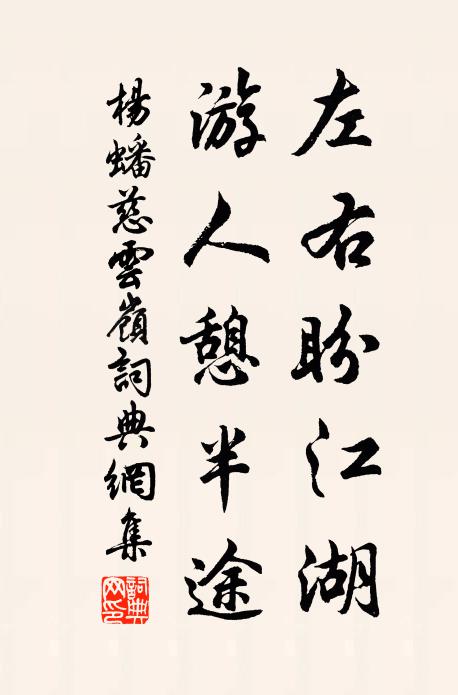 左右盼江湖
游人憩半途
楊蟠慈雲嶺詞典網集
詞典網印